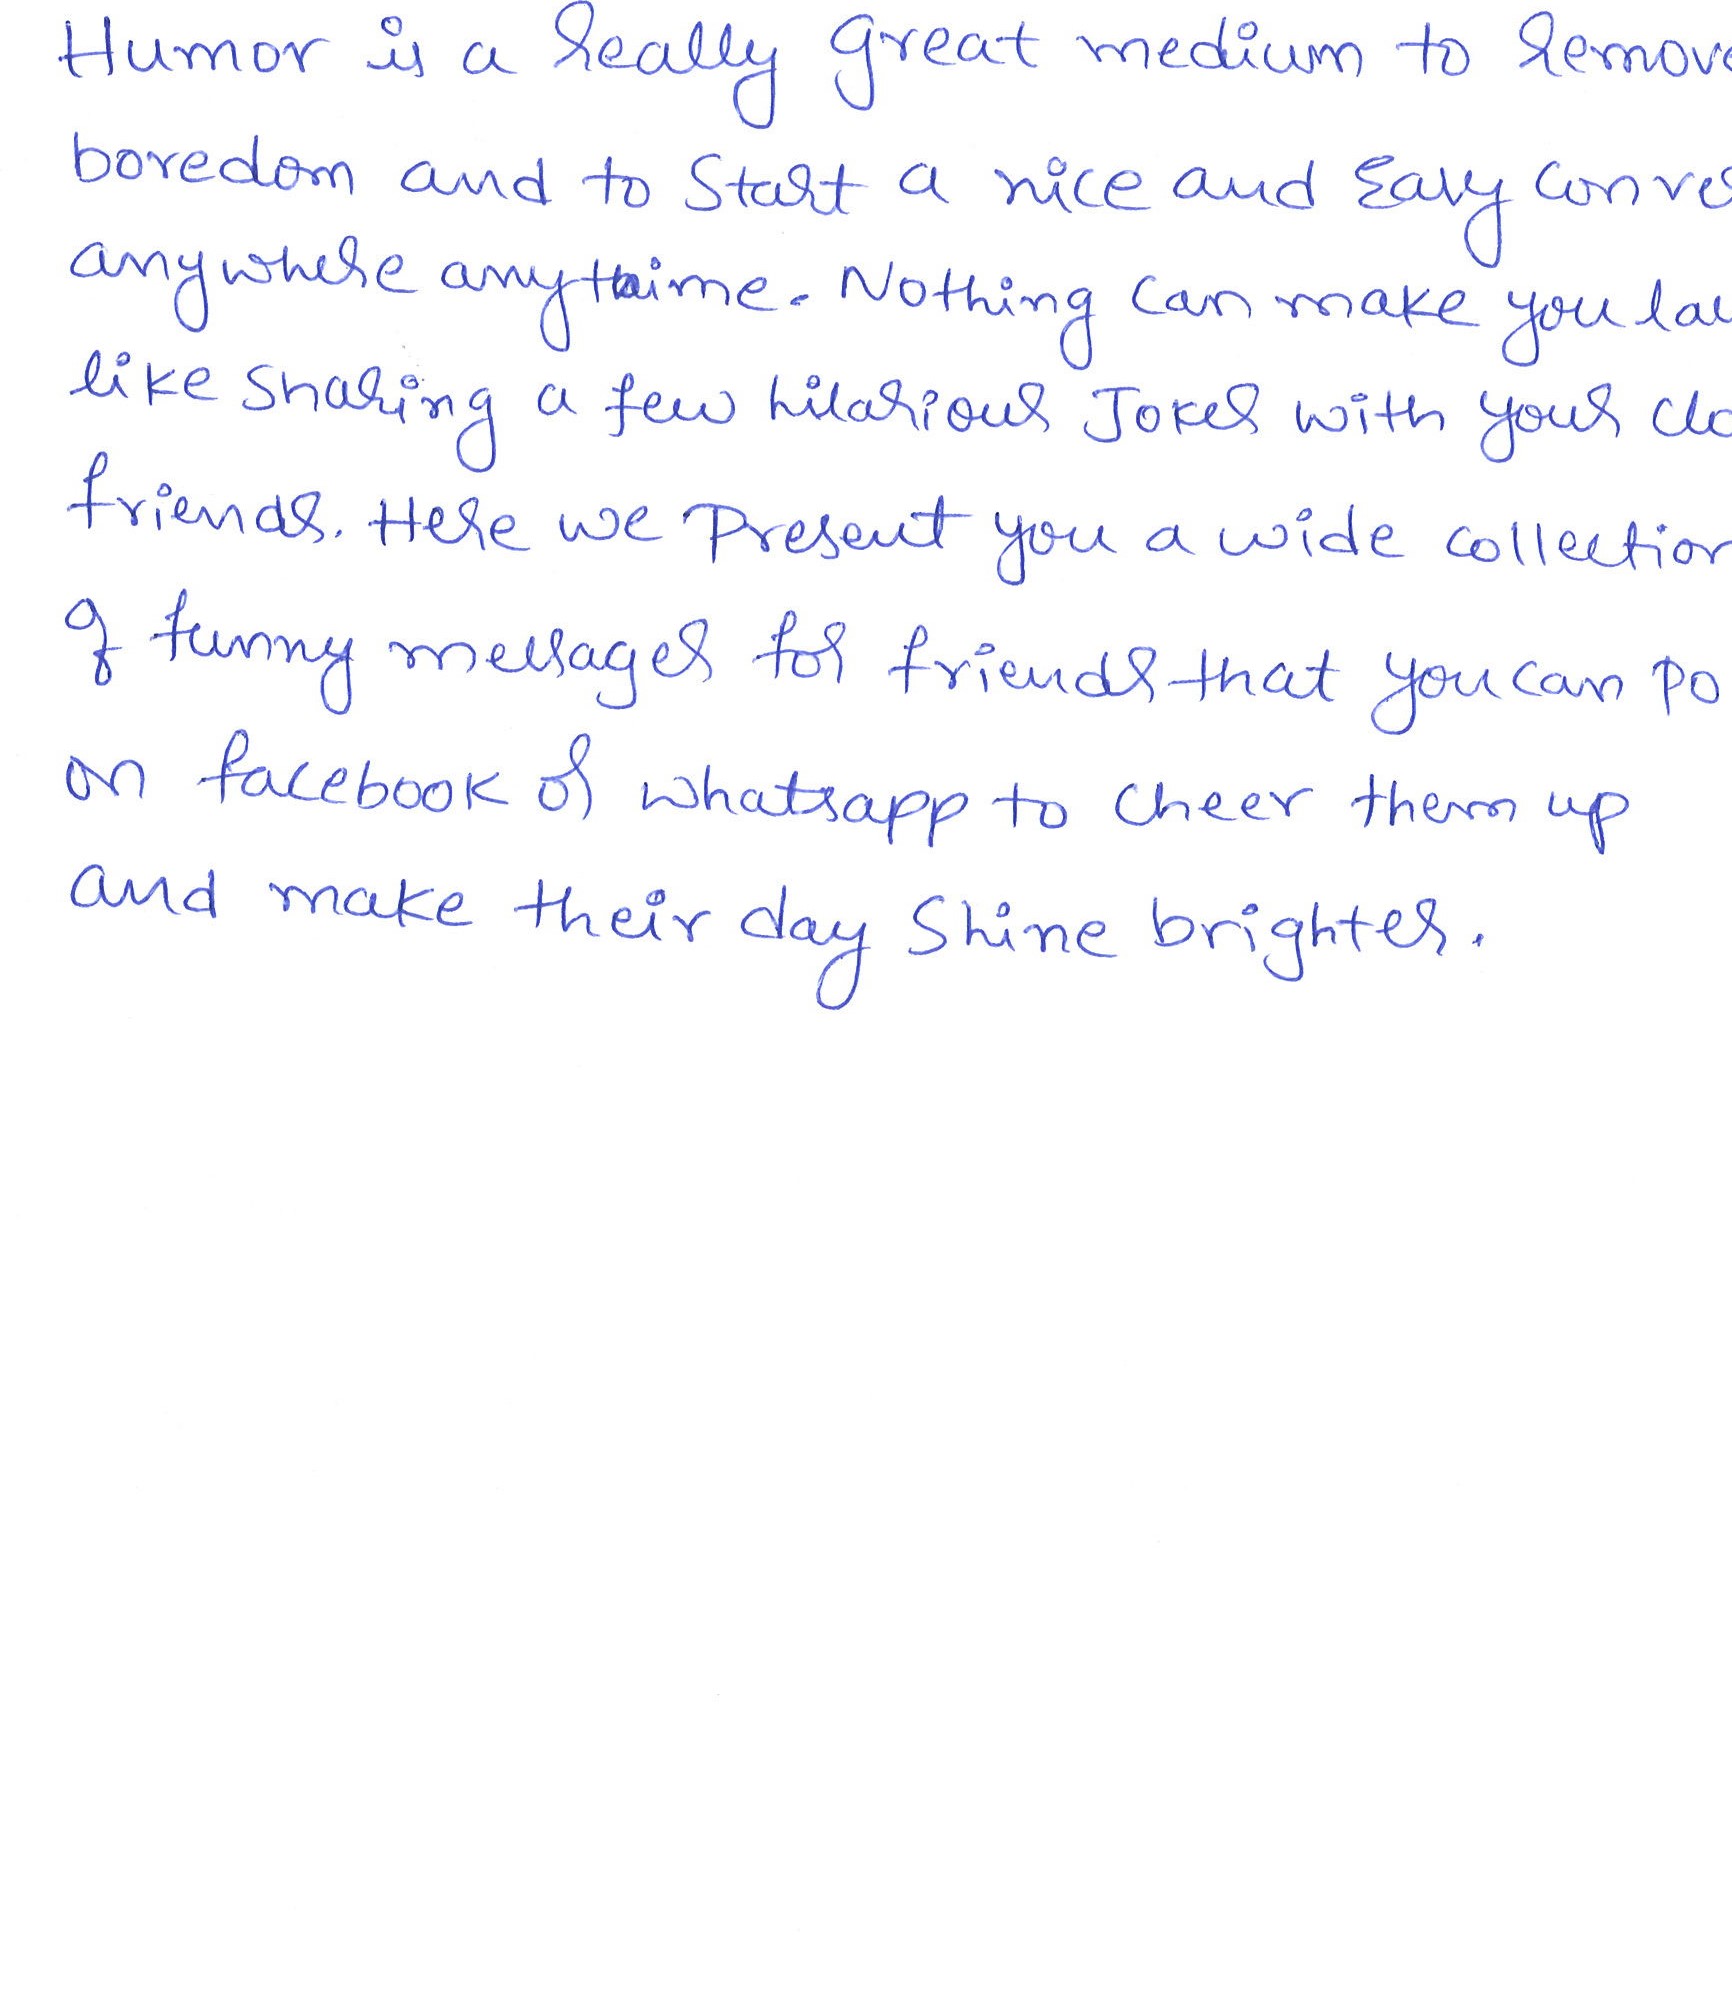 Humor is a really great medium to remove
boredom and to Start a nice and Easy Conve
anywhere anytime. Nothing can make you lau
like sharing a few hilarious Jokes with your clo
friends. Here we Present you a wide collection
of funny messages for friends that you can po
on facebook or whatsapp to cheer them up
and make their day Shine brighter.